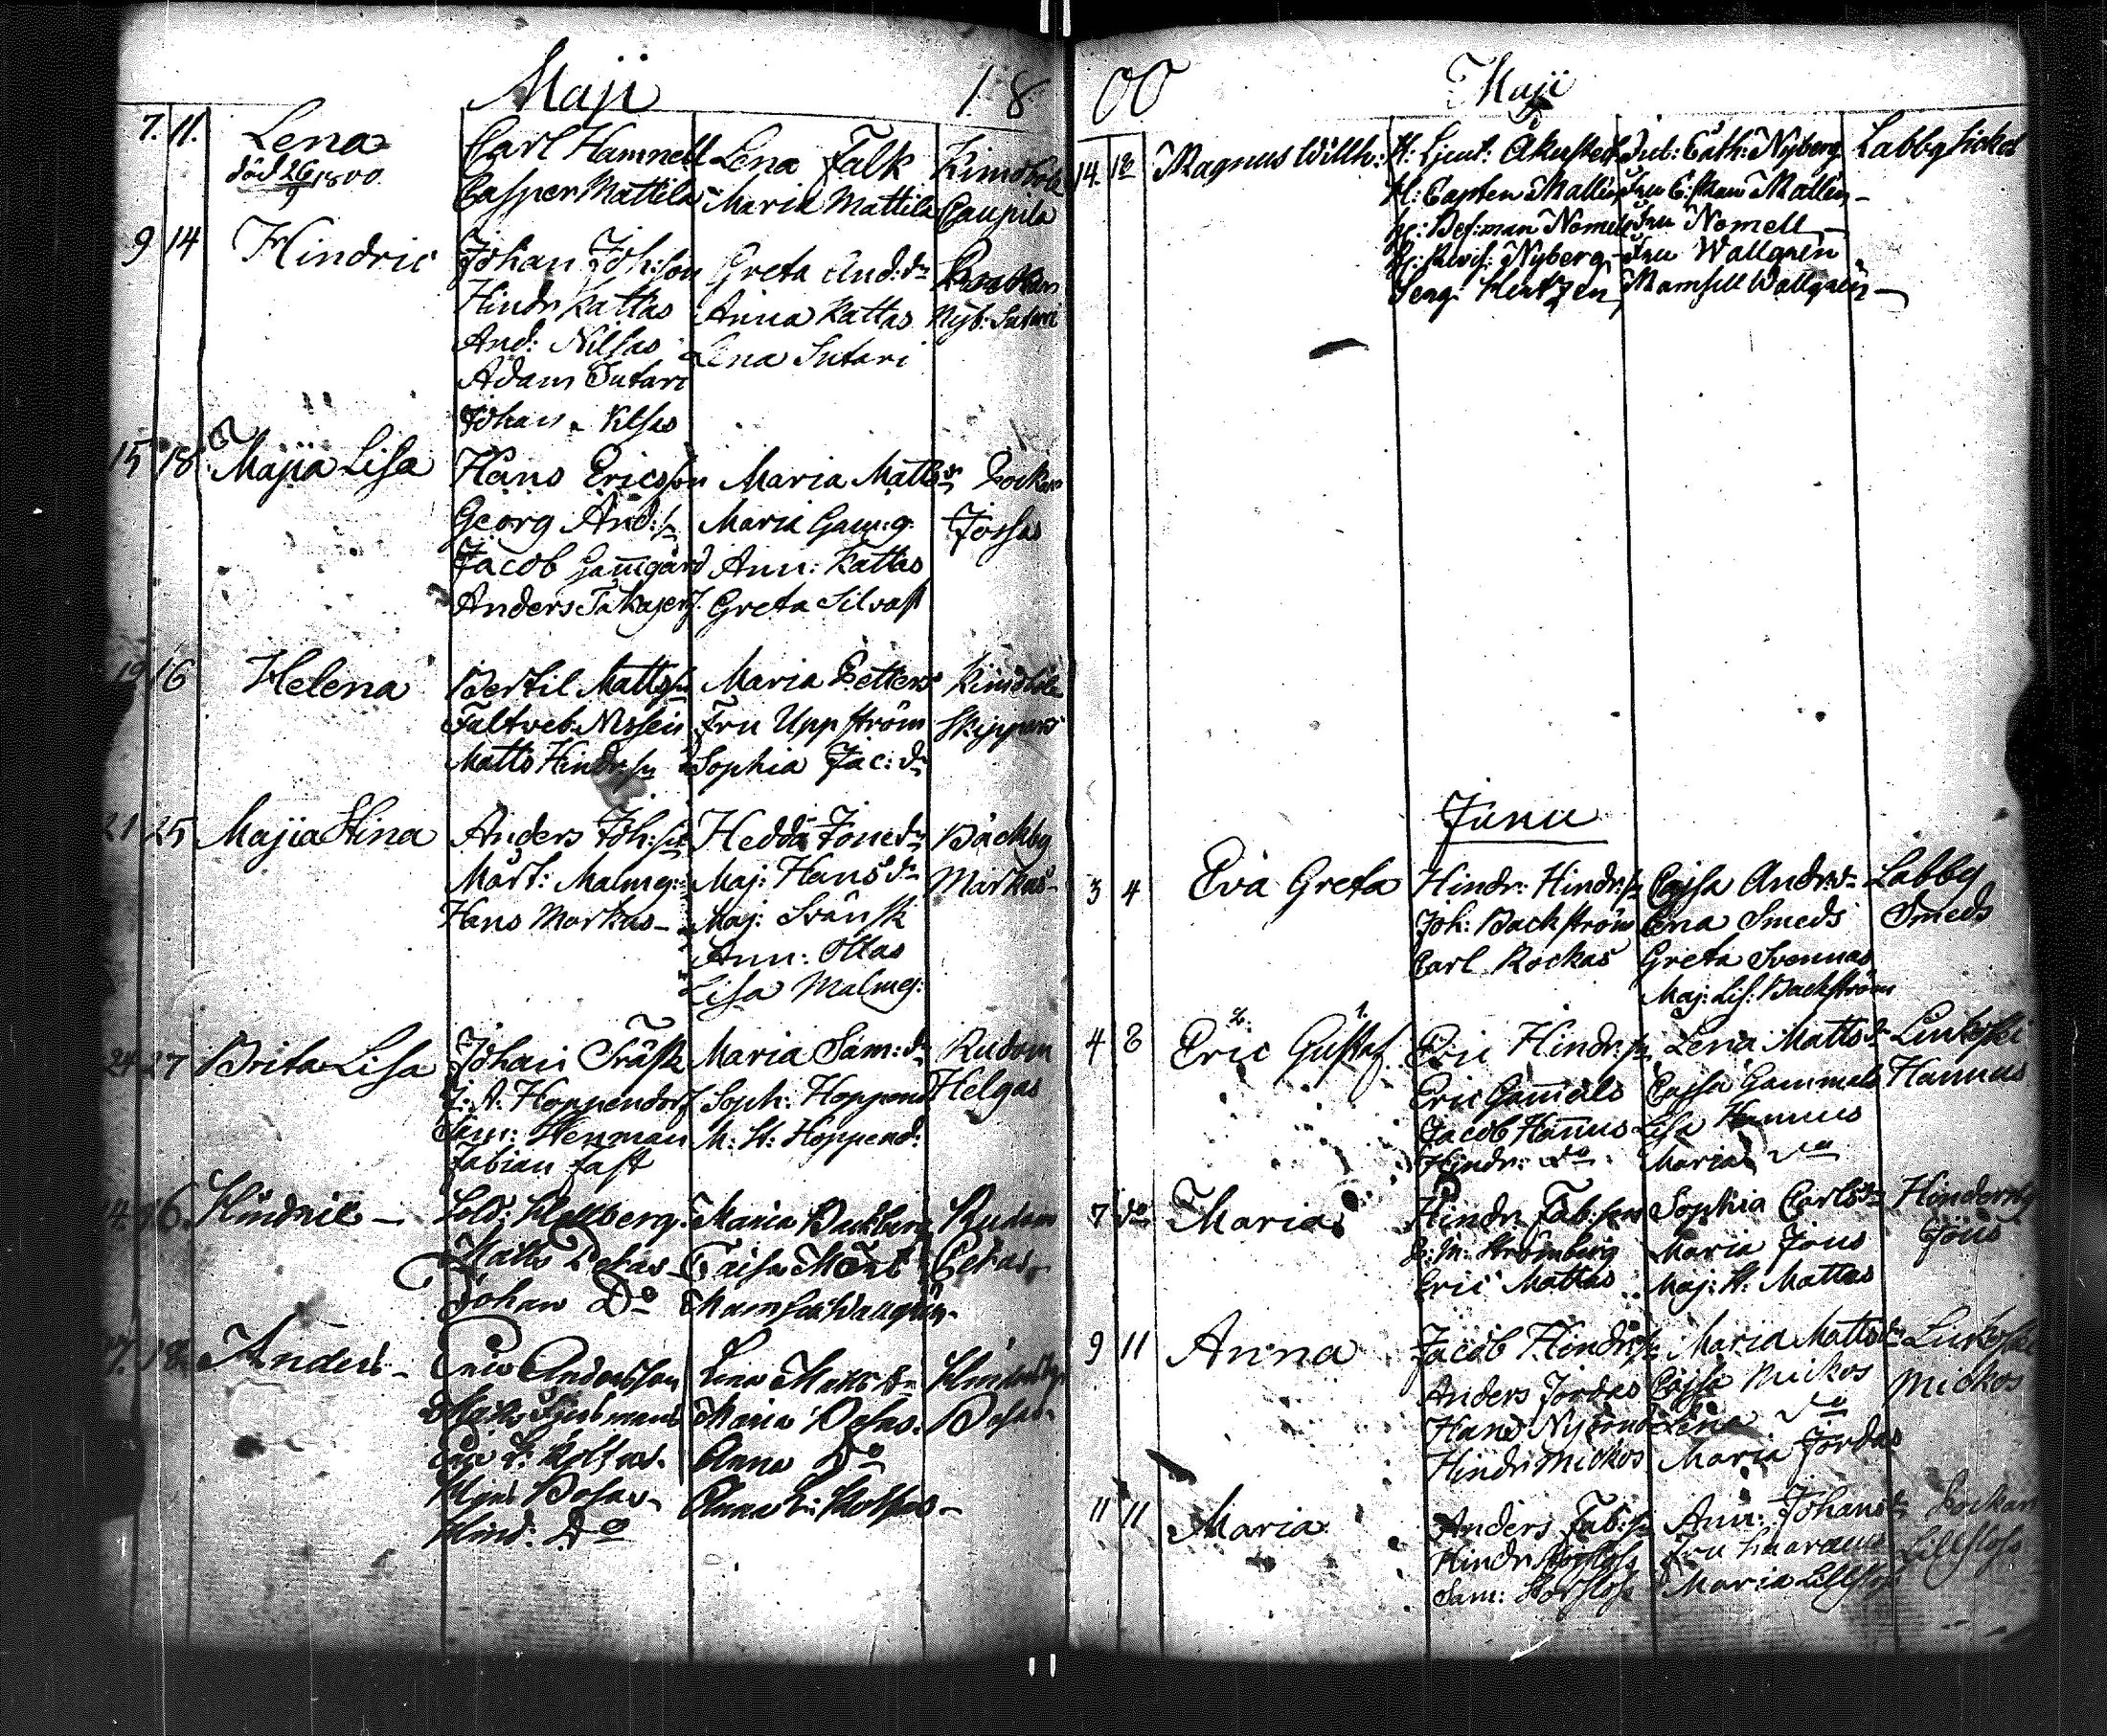 Maji 18
7. 11. Lena Carl Hamnell Lena Falk Kimoböle
död 26/9 1800 Casper Mattila Maria Mattila Caupila
9 14 Hindric Johan Joh:son Greta And:dr
Hindr Kattas Anna Kattas Nyb: Sutari
And: Nilsas Lena Sutari
Adam Sutari
Johan Nilsas
15 18 Majia Lisa Hans Ericsson Maria Matts dr Lockan
Georg And: sn Maria Gam: g: Jossas
Jacob Gam̅gård Ann: Kattas
Anders Greta Silvast
19 16 Helena Bertil Mattss Maria Petters Kimoböle
Faltveb. Nissen Fru Uppström Skippars
Matts Hindr: sn Sophia Jac: dr
21 25 Majia Stina Anders Joh: sn Hedda Jone dr Bäckby
Mårt: Malmg: Maj: Hans dr Markus
Hans Markus Maj: Svänsk
Ann: Ollas
Lisa Malmg:
24 27 Brita Lisa Johan Träsk Maria Sam: dr Rudom
J: A: Hoppendorf Soph: Hoppend Helgas
Sim: Henman M: St: Hoppend:
Fabian Fast
14. 16. Hindric Sold: Klekberg Maria Backberg Rudom
Matts Pekas Caisa Pekas
Johan Do Mamsell Wallgrén
17. 18. Anders Eric Andersson Lena Matts dr Hindersby
Matts Maria Bosas Bosas
Eric Anna Do
Bosas Anna
Hind: Do
00 Maji
14. 18 Magnus Willh: H: Ljeut: Åkerstedt Jul: Cath: Nyberg Labby Sickos
H: Capten Mallén Fru C: Mallén
H: Bef:man Nomell Fru Nomell
H: Revis: Nyberg Fru Wallgrén
Serg: Mamsell Wallgrén
Junii
3 4 Eva Greta Hindr: Hindr: sn Cajsa Andr: dr Labby
Joh: Backström Lena Smeds Smeds
Carl Rockas Greta Svennas
Maj: Lis: Backström
2. 1.
4 8 Eric Gustaf Eric Hindr: sn Lena Matts dr Linkoski
Eric Gam̅als Cajsa Gammals Hannus
Jacob Han̅us Lisa Hannus
Hindr: do Maria do
7 do Maria Hindr Fab: son Sophia Carls dr Hindersby
Strömberg Maria Jöns Jöns
Eric Mattas Maj: St: Mattas
9 11 Anna Jacob Hindr: sn Maria Matts dr Linkoski
Anders Jordas Cajsa Mickos Mickos
Hans Lena do
Hindr Mickos Maria Jordas
11 11 Maria Anders Fab: sn Ann: Johans dr Lockan
Hindr Storsloss Fru Lillsloss
Sam: Storsloss Maria Lillsloss